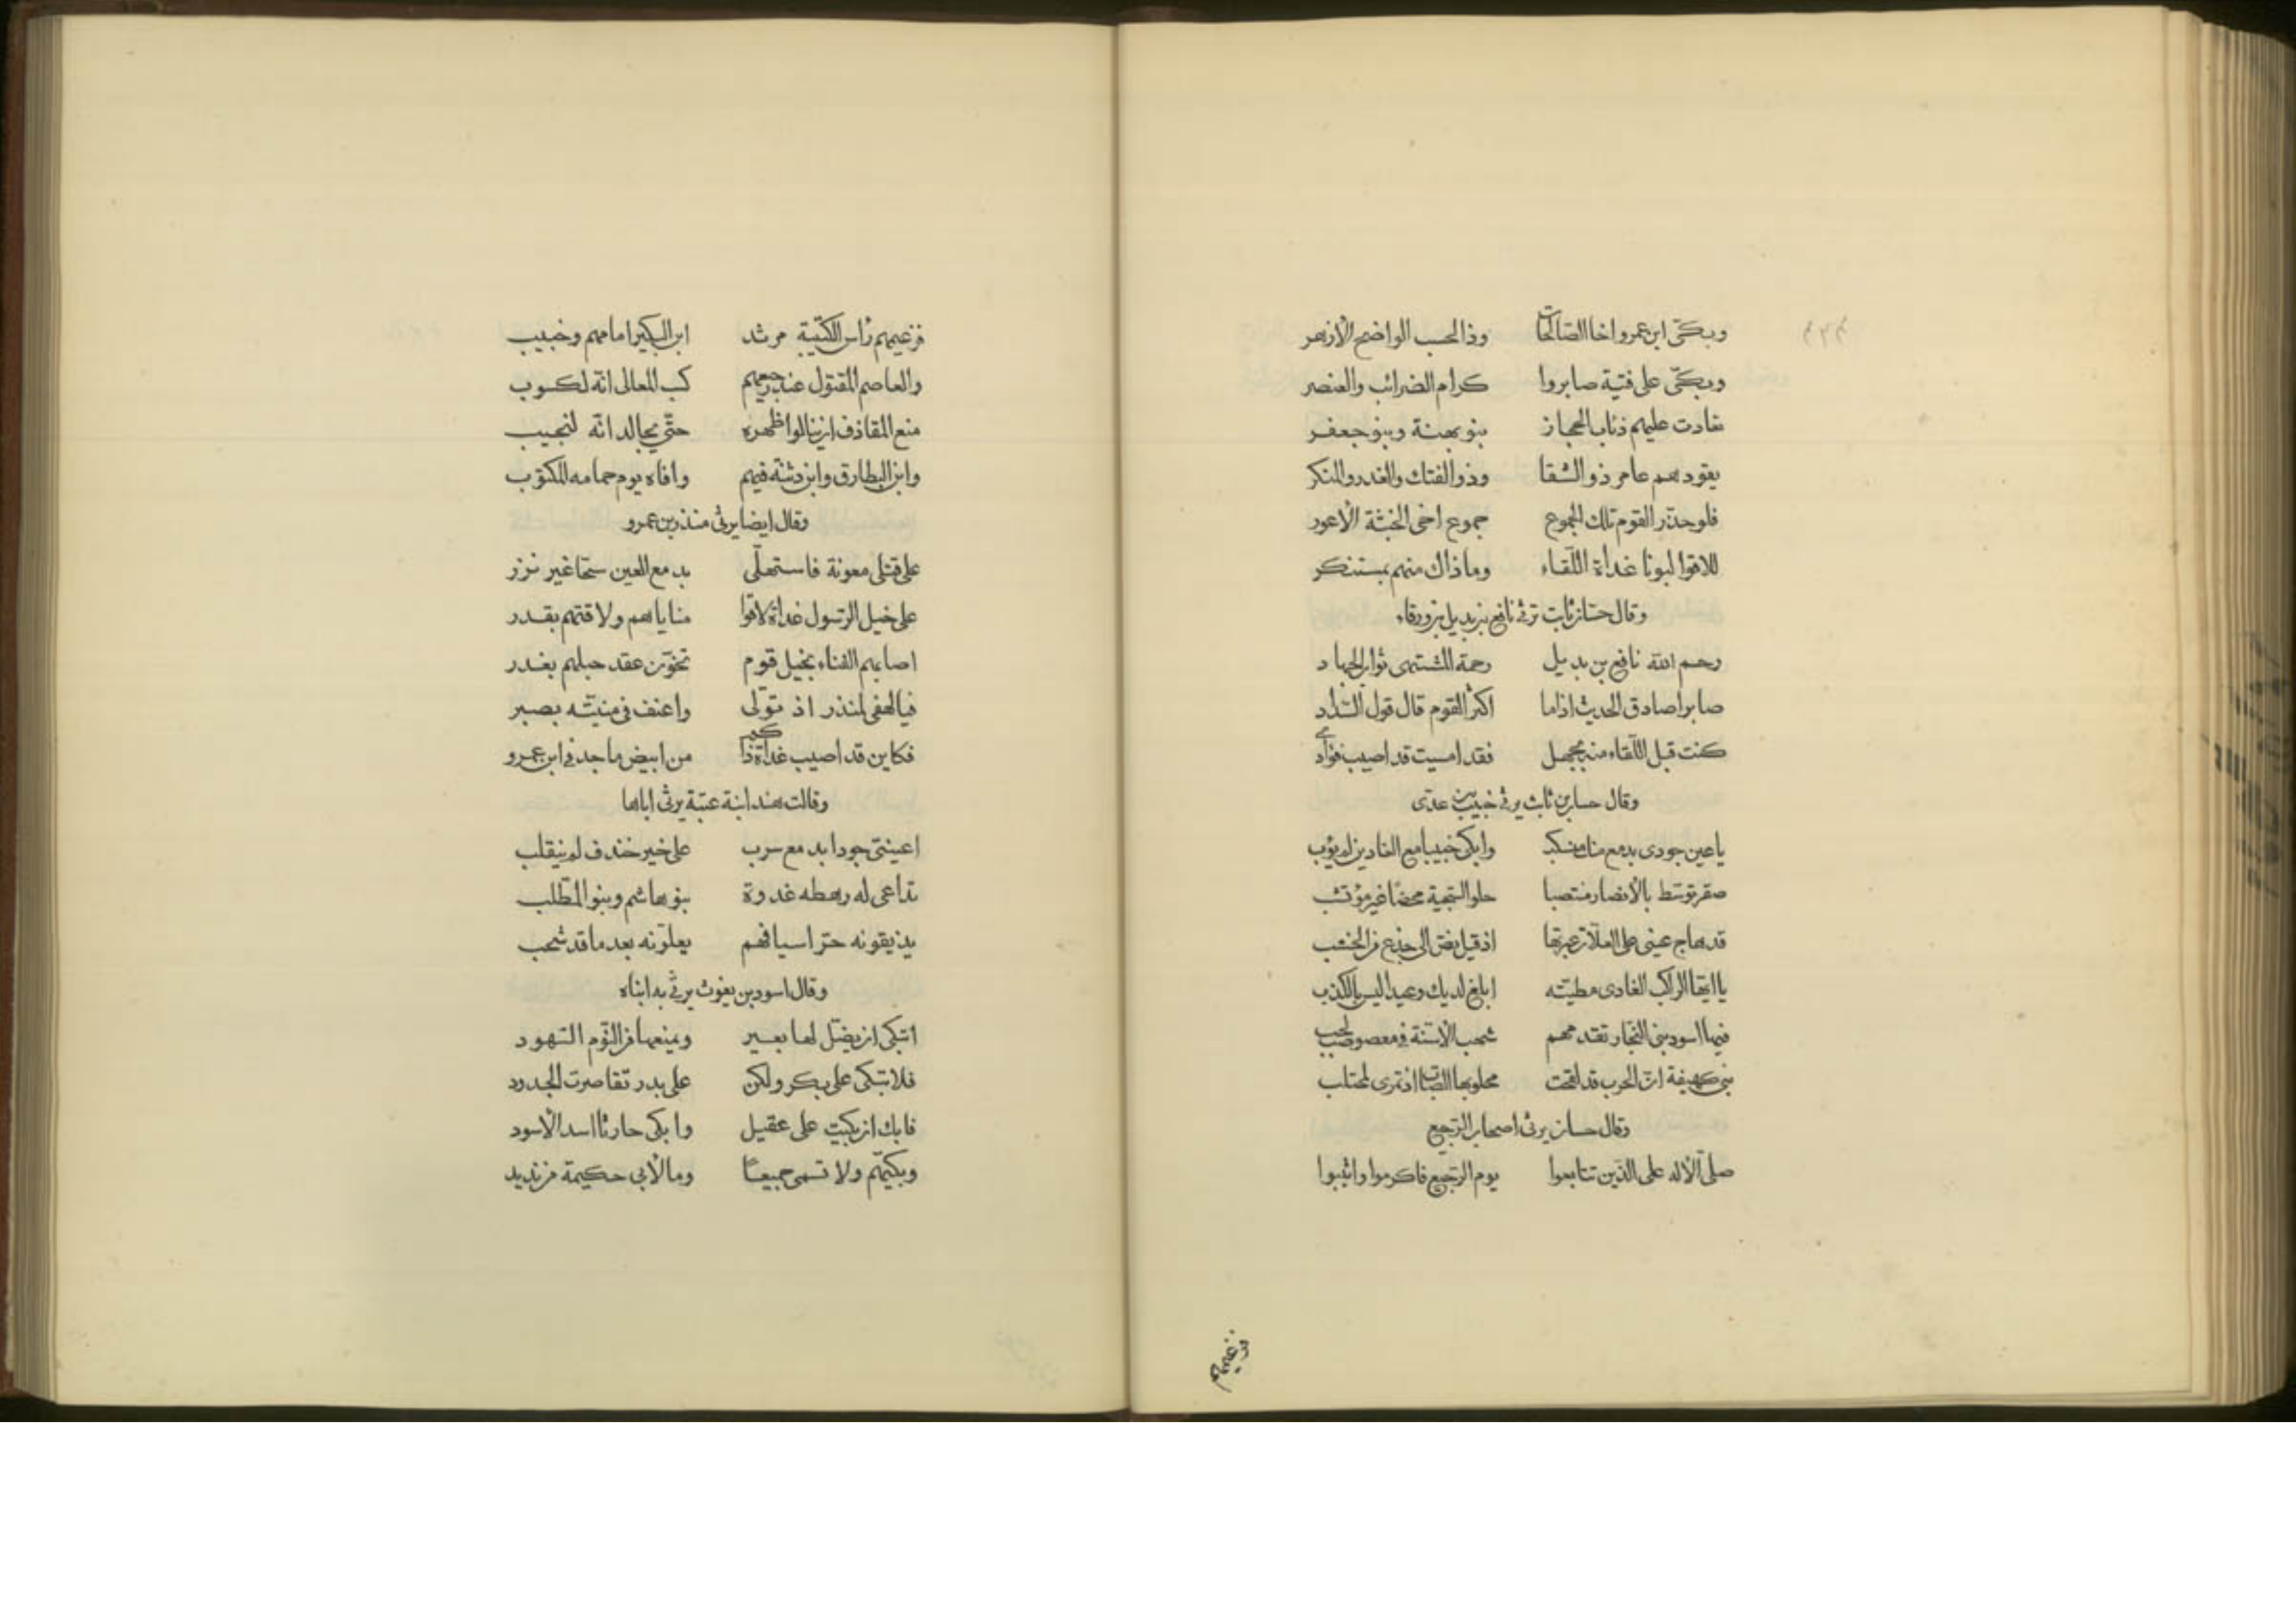 وبكّى ابن عمرو اخا الصالحات وذا لحسب الواضح الأزهر
وبكّى على فتية صابروا كرام الضرائب والعنصر
تعادت عليهم ذئاب الحجاز بنو بهثة وبنو جعفر
يقودهم عامر ذو الشقا وذو الفتك والغدر والمنكر
فلو حذّر القوم تلك الجموع جموع اخى الخبثة الأعور
للاقوا ليوثا غداة اللّقاء وماذاك منهم بمستنكر
وقال حسّان ثابت ترثى نافع بن بديل بن ورقاء
رحم الله نافع بن بديل رحمة المشتهى ثواب الجهاد
صابرا صادق الحديث اذاما اكثر القوم قال قول السّداد
كنت قبل اللّقاء منه بجهل فقد امسيت قد اصيب فؤادى
وقال حسان بن ثابت يرثى خبيب بن عدى
يا عين جودى بدمع منك منسكب وابكى خبيبا مع الغادين لم يؤب
صقر توسّط بالأنصار منتصبا حلو السّجية محضًا غير مؤتشب
قد هاج عينى على العلّات عبرتها اذ قيل نصّ الى جذع من الخشب
يا ايّها الراكب الغادى مطيّته ابلغ لديك وعيدا ليس بالكذب
فيها اسود بنى النجّار تقدمهم شهب الأسنّة فى معصوصب لجب
بنى كهيفة انّ الحرب قد لقحت محلوبها الصاب اذ تمرى لمحتلب
وقال حسان يرثى اصحاب الرّجيع
صلّى الأله على الذّين تتابعوا يوم الرّجيع فاكرموا واثيبوا
فزعيمهم
فزعيمهم رأس الكتيبة مرثد ابن البكير امامهم وخبيب
والعاصم المقتول عند رجيعهم كسب المعالى انّه لكسوب
منع المقاذف ان ينالوا ظهره حتّى يجالد انّه لنجيب
وابن البطارق وابن دثنة فيهم وافاه يوم حمامه المكتوب
وقال ايضا يرثى منذر بن عمرو
على قتلى معونة فاستهلّى بدمع العين سحّا غير نزر
على خيل الرّسول غداة لاقوا مناياهم ولاقتهم بقدر
اصابهم الفناء بخيل قوم تخوّن عقد حبلهم بغدر
فيا لهفى لمنذر اذ تولّى واعنف فى منيّته بصبر
فكاين قد اصيب غداة ذاكم من ابيض ماجد فى ابن عمرو
وقالت هند ابنة عتبة يرثى اباها
اعينىّ جودا بدمع سرب على خير خندف لم ينقلب
تداعى له رهطه غدوة بنو هاشم وبنو المطّلب
يذيقونه حرّ اسيافهم يعلّونه بعد ما قد شحب
وقال اسود بن يغوث يرثى به ابناه
اتبكى ان يضّل لها بعير ويمنعها من النّوم السّهود
فلا تبكى على بكر ولكن على بدر تقاصرت الجدود
فابك ان بكيت على عقيل وابكى حارثا اسد الأسود
وبكيهّم ولا تسمى جميعًا وما لأبى حكيمة من نديد